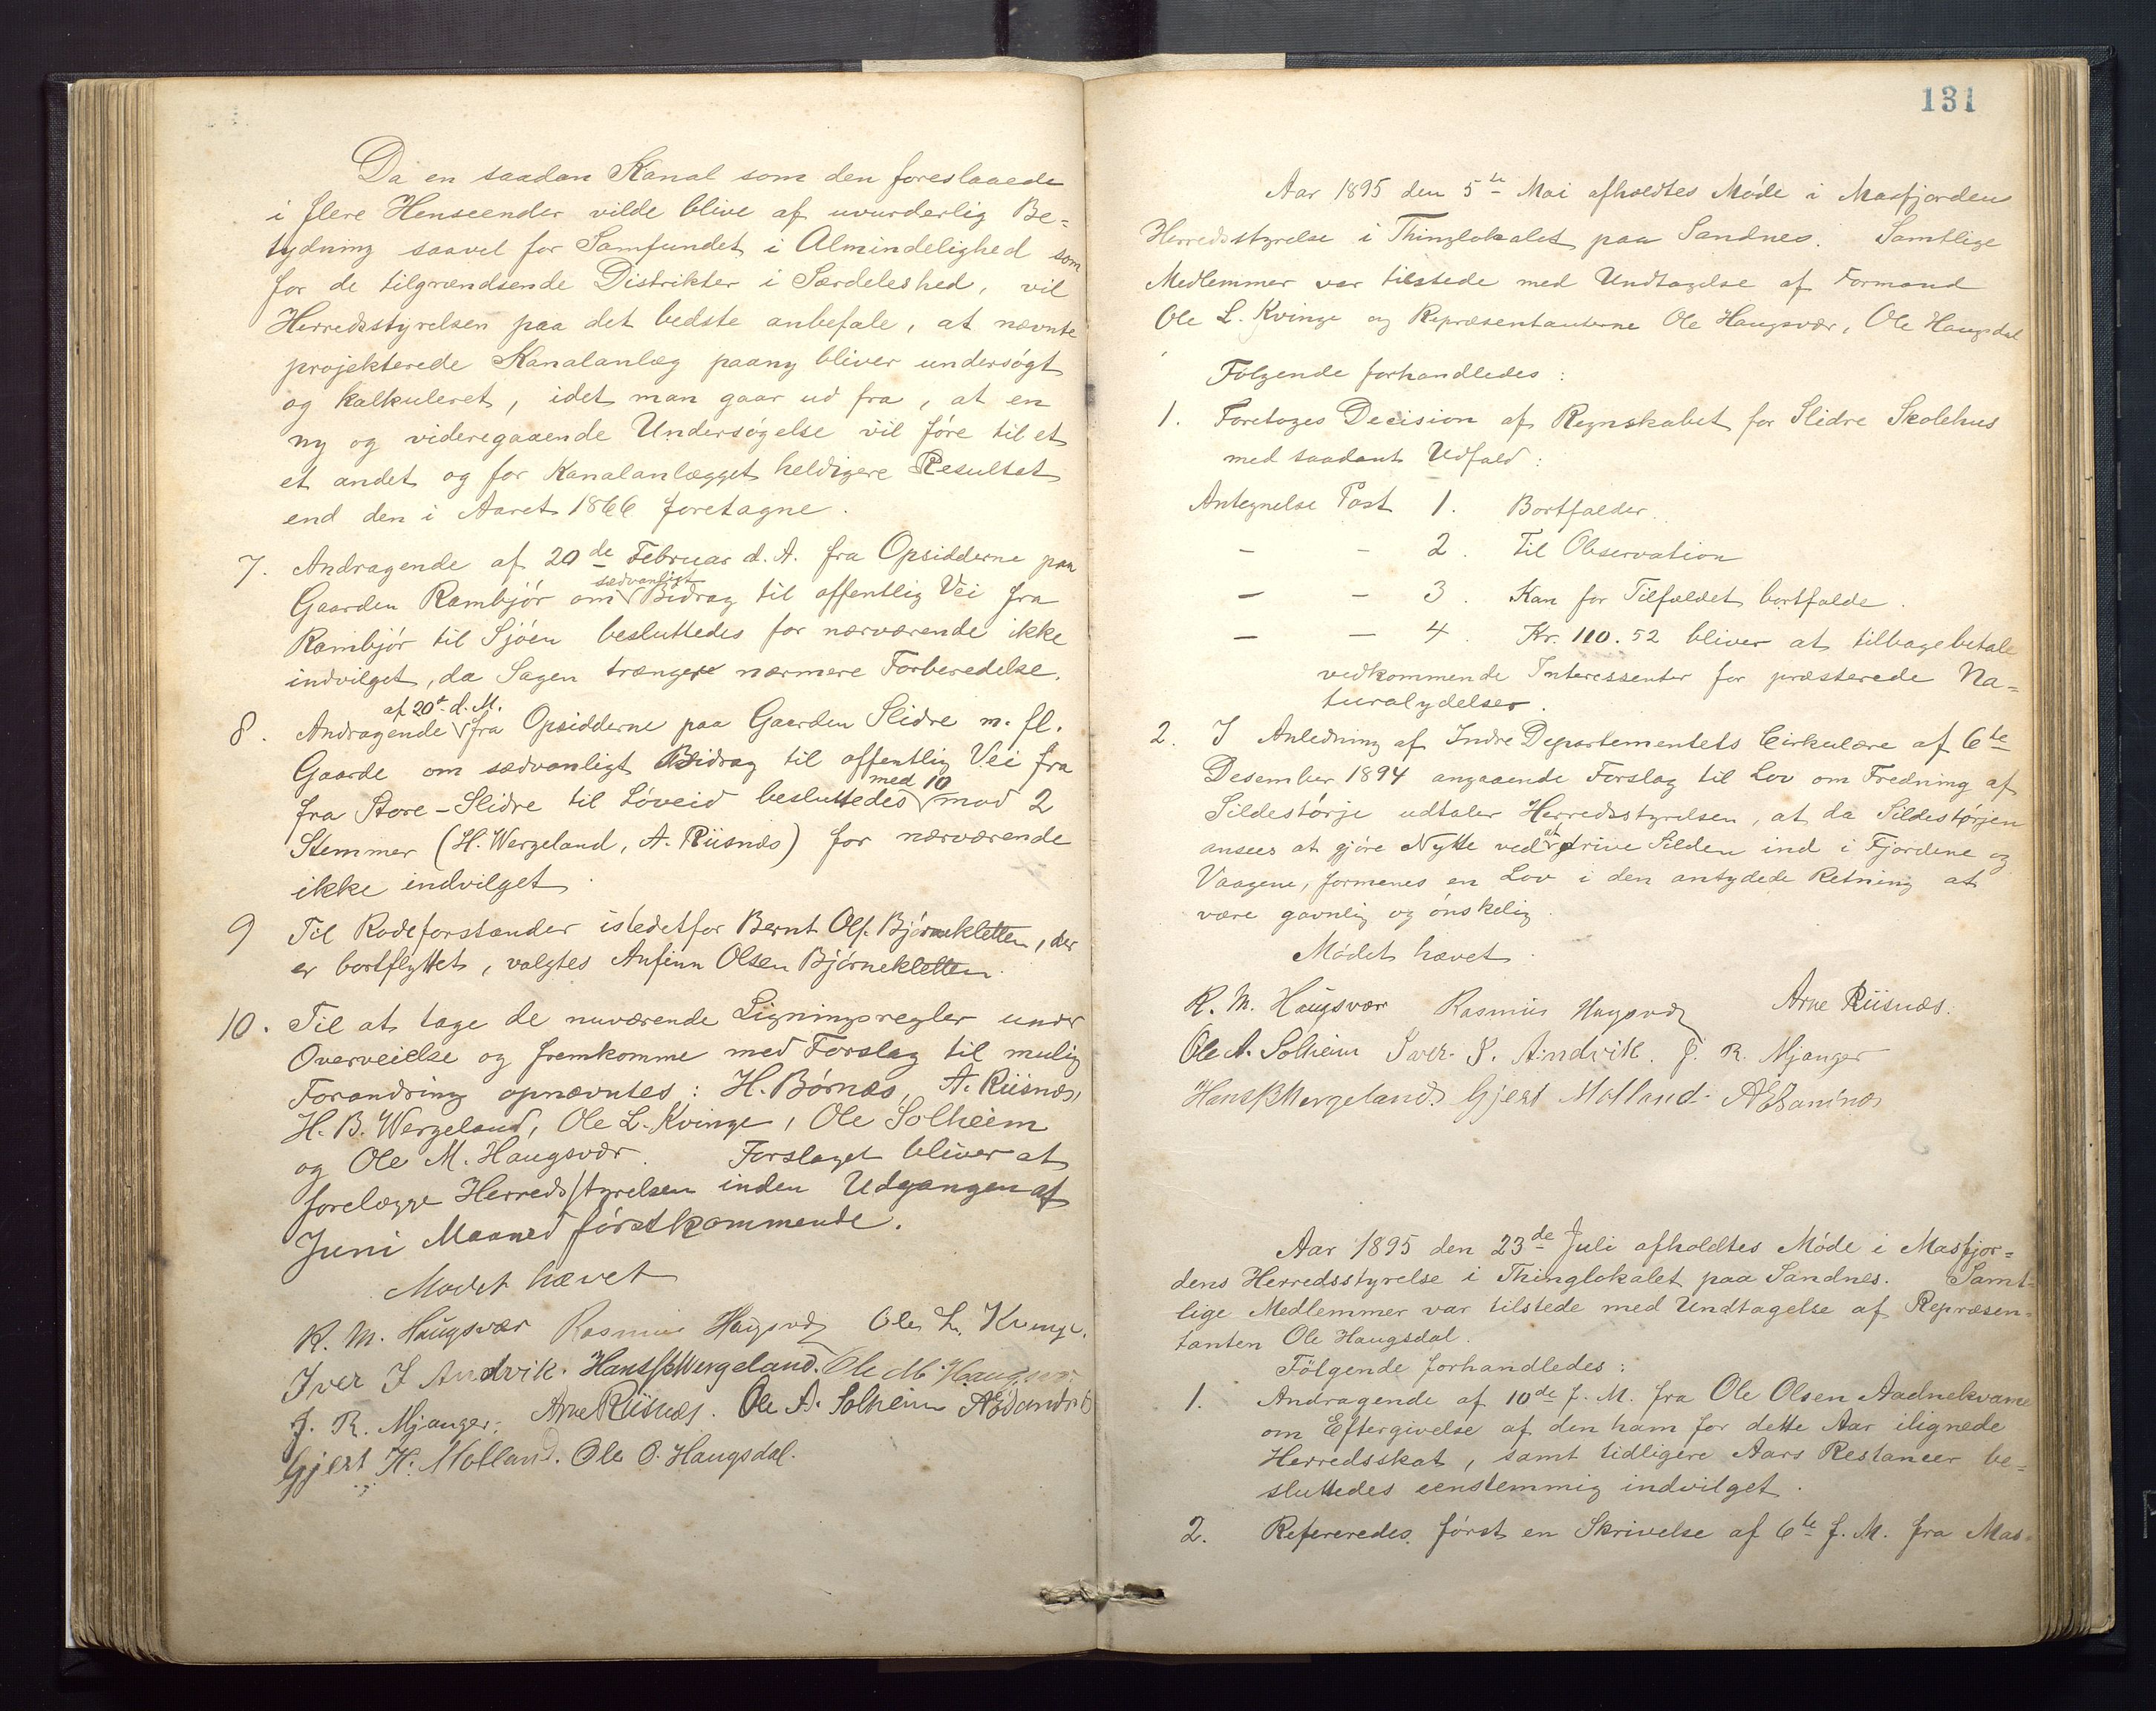 Da en saadan Kanal som den foreslaaede
i flere Henseender vilde blive af uvurderlig Be=
tydning saavel for Samfundet i Almindelighed som
for de tilgrændsende Distrikter i Særdeleshed, vil
Herredsstyrelsen paa det bedste anbefale, at nævnte
projekterede Kanalanlæg paany bliver undersøgt
og kalkuleret, idet man gaar ud fra, at en
ny og videregaaende Undersøgelse vil føre til et
et andet og for Kanalanlægget heldigere Resultat
end den i Aaret 1866 foretagne.
7. Andragende af 20de Februar d. A. fra Opsidderne paa
sædvanligt
Gaarden Rambjør om Bidrag til offentlig Vei fra
Rambjør til Sjøen besluttedes for nærværende ikke
indvilget, da Sagen trænger nærmere Forberedelse.
af 20de d. M.
8. Andragende fra Opsidderne paa Gaarden Slidre m. fl.
Gaarde om sædvanligt Bidrag til offentlig Vei fra
med 10
fra Store-Slidre til Løveid besluttedes mod 2
Stemmer (H. Wergeland, A. Riisnæs) for nærværende
ikke indvilget.
9 Til Rodeforstander istedetfor Bernt Ols. Bjørnekletten, der
er bortflyttet, valgtes Anfinn Olsen Bjørnekletten.
10. Til at tage de nuværende Ligningsregler under
Overveielse og fremkomme med Forslag til mulig
Forandring opnævntes: H. Børnæs, A. Riisnæs,
H. B. Wergeland, Ole L. Kvinge, Ole Solheim
og Ole M. Haugsvær. Forslaget bliver at
forelægge Herredsstyrelsen inden Udgangen af
Juni Maaned førstkommende.
Mødet hævet
R. M. Haugsvær Rasmus Haugsvær Ole L. Kvinge.
Iver I Andvik. Hans B Wergeland. Ole M. Haugsvær
J. R. Mjanger. Arne Riisnæs. Ole A. Solheim A E Sandnæs
Gjert H. Molland. Ole O. Haugsdal.
131
Aar 1895 den 5te Mai afholdtes Møde i Masfjorden
Herredsstyrelse i Thinglokalet paa Sandnes. Samtlige
Medlemmer var tilstede med Undtagelse af Formand
Ole L. Kvinge og Repræsentanterne Ole Haugsvær, Ole Haugsdal
Følgende forhandledes:
1. Foretoges Decision af Regnskabet for Slidre Skolehus
med saadant Udfald:
Antegnelse Post 1. Bortfalder.
— — 2. Til Observation
— — 3. Kan for Tilfældet bortfalde.
— — 4. Kr. 110.52 bliver at tilbagebetale
vedkommende Interessenter for præsterede Na=
turalydelser.
2. I Anledning af Indre Departementets Cirkulære af 6te
Desember 1894 angaaende Forslag til Lov om Fredning af
Sildestørje udtaler Herredsstyrelsen, at da Sildestørjen
at
ansees at gjøre Nytte ved drive Silden ind i Fjordene og
Vaagene, formenes en Lov i den antydede Retning at
være gavnlig og ønskelig.
Mødet hævet.
R. M. Haugsvær Rasmus Haugsvær Arne Riisnæs.
Ole A. Solheim Iver I. Andvik. J. R. Mjanger
Hans B Wergeland. Gjert Molland. A E Sandnæs
Aar 1895 den 23de Juli afholdtes Møde i Masfjor=
dens Herredsstyrelse i Thinglokalet paa Sandnes. Samt=
lige Medlemmer var tilstede med Undtagelse af Repræsen=
tanten Ole Haugsdal.
Følgende forhandledes:
1. Andragende af 10de f. M. fra Ole Olsen Aadnekvame
om Eftergivelse af den ham for dette Aar ilignede
Herredsskat, samt tidligere Aars Restancer be=
sluttedes eenstemmig indvilget.
2. Refereredes først en Skrivelse af 6te f. M. fra Mas=